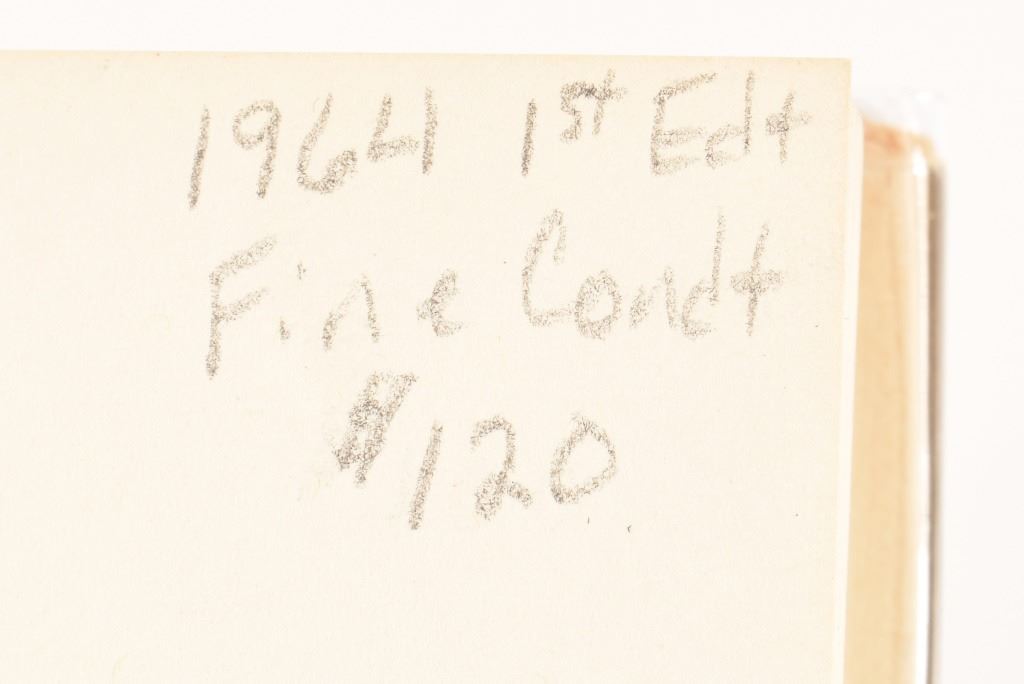 1964 1st Edt
Fine Condt
$120